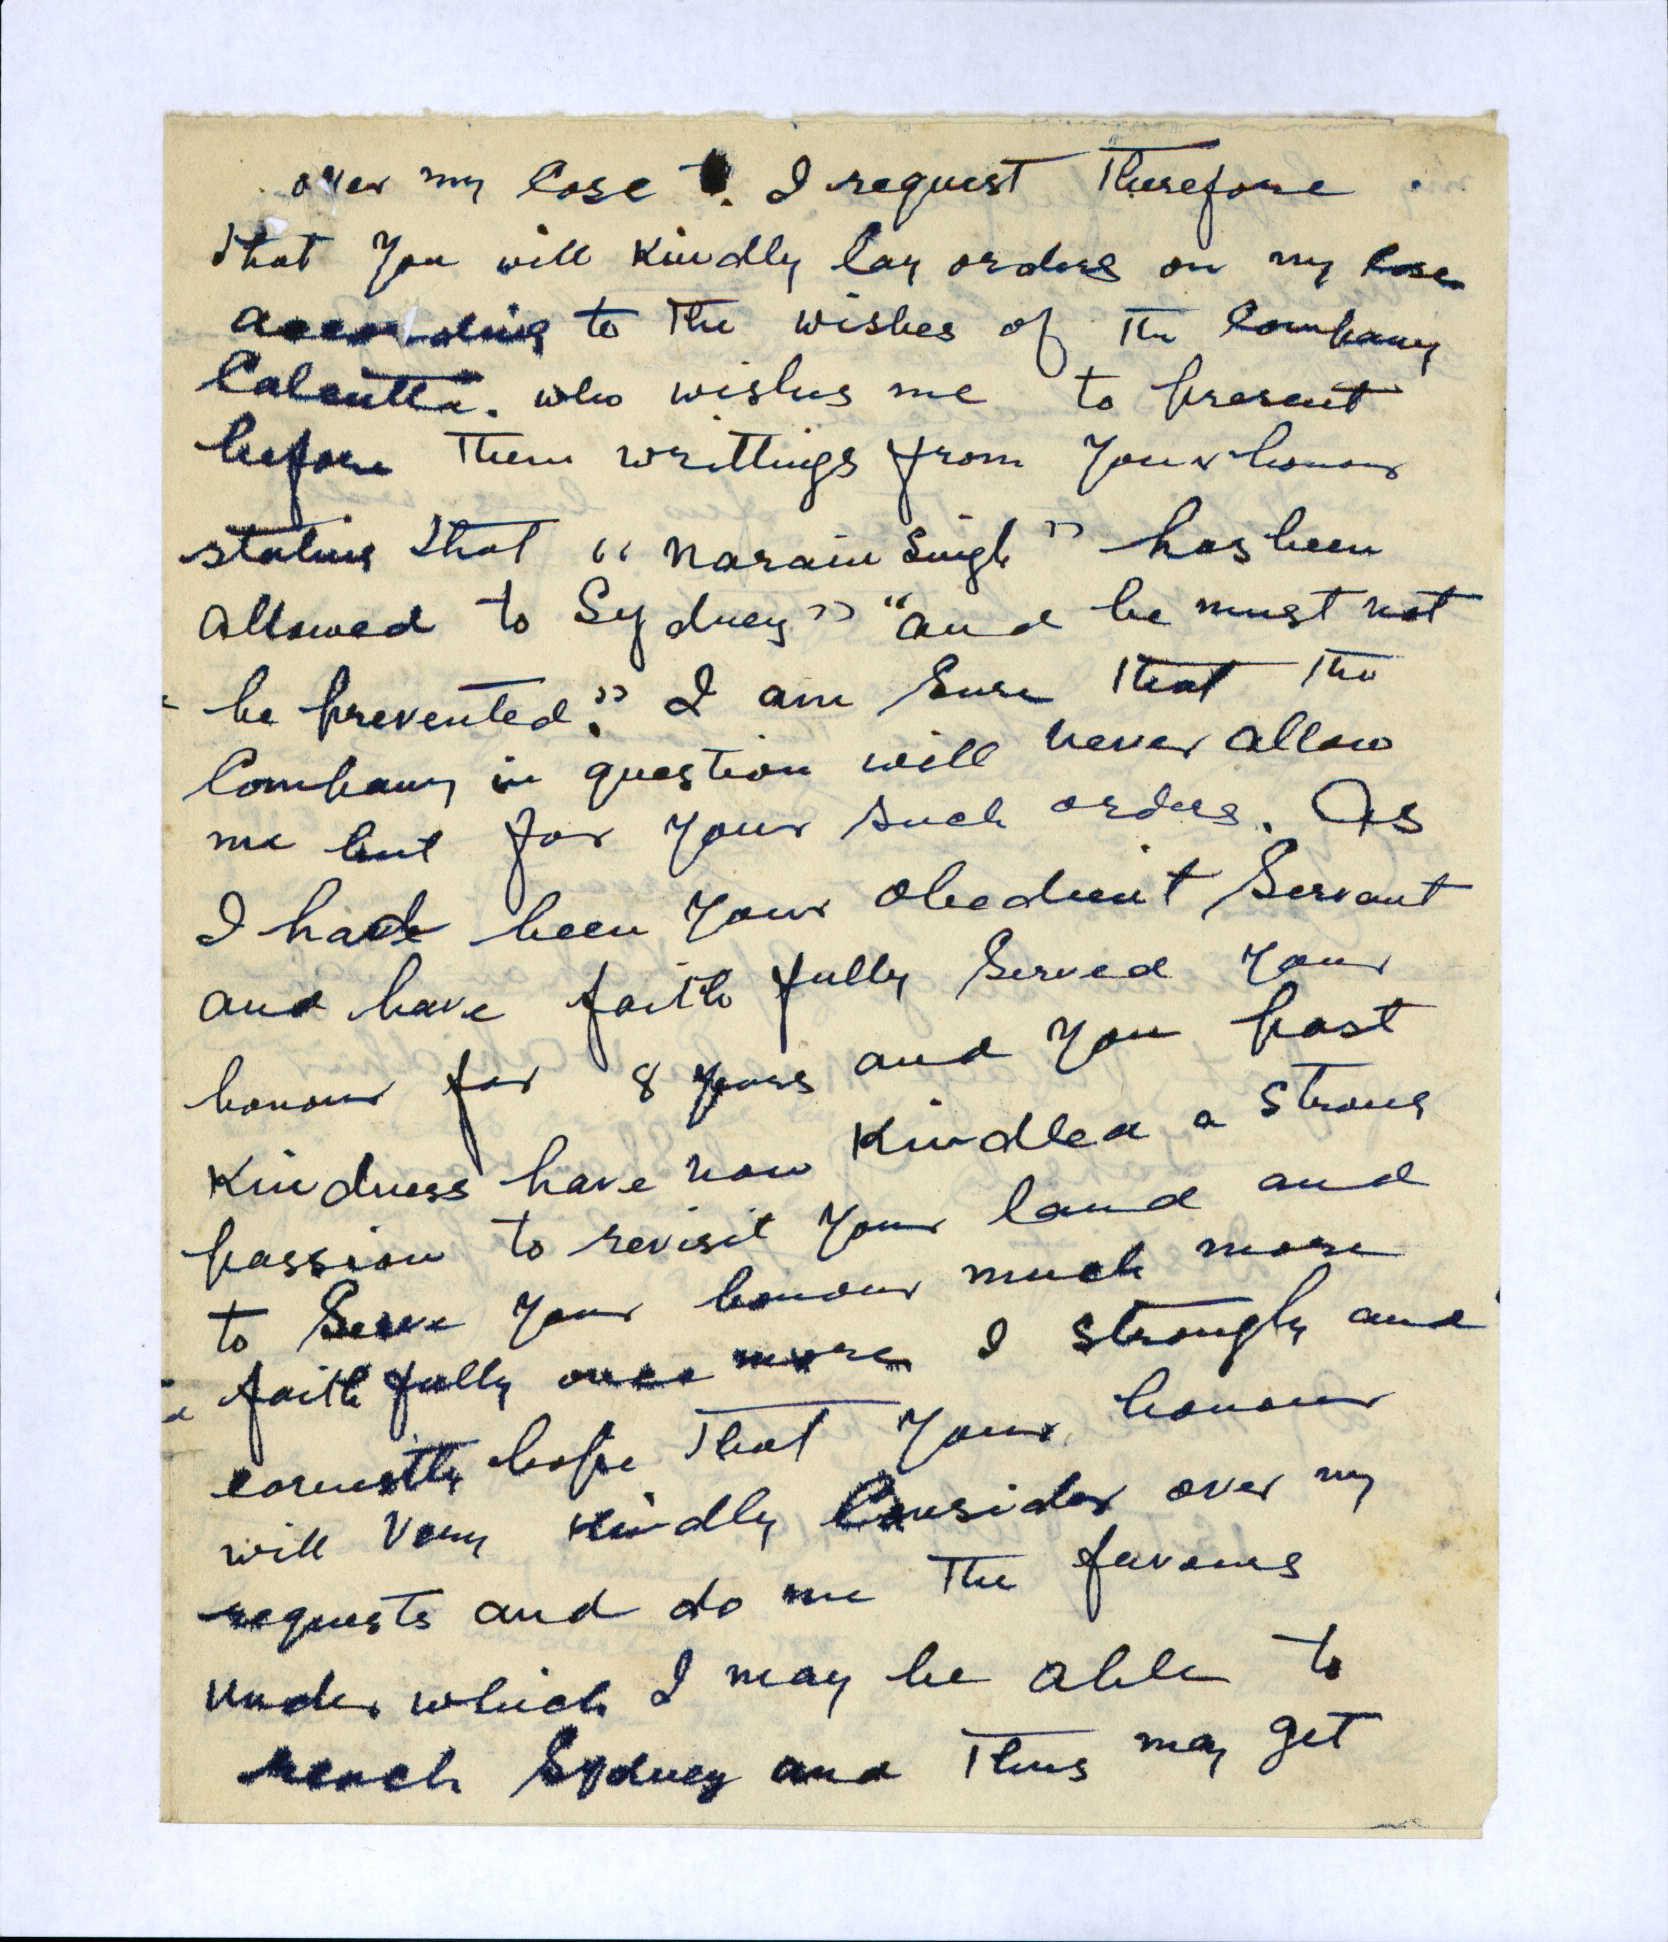 over my Case. I request Therefore
that you will Kindly lay orders on my Case
according to The wishes of The Company
Calcutta. who wishes me to present
before Them writtings from Your honour
stating that "Narain Singh" has been
allowed to Sydney" "and he must not
be prevented." I am Sure That The
Company in question will never allow
me but for your such orders. As
I have been Your obedient Servant
and have faith fully Served Your
honour for 8 years and You past
Kindness have now Kindled a strong
passion to revisit Your land and
to Serve Your honour much more
faith fully once more I strongly and
earnestly hope That Your honour
will Very Kindly Consider over my
requests and do me The favours
under which I may be able to
reach Sydney and Thus may get